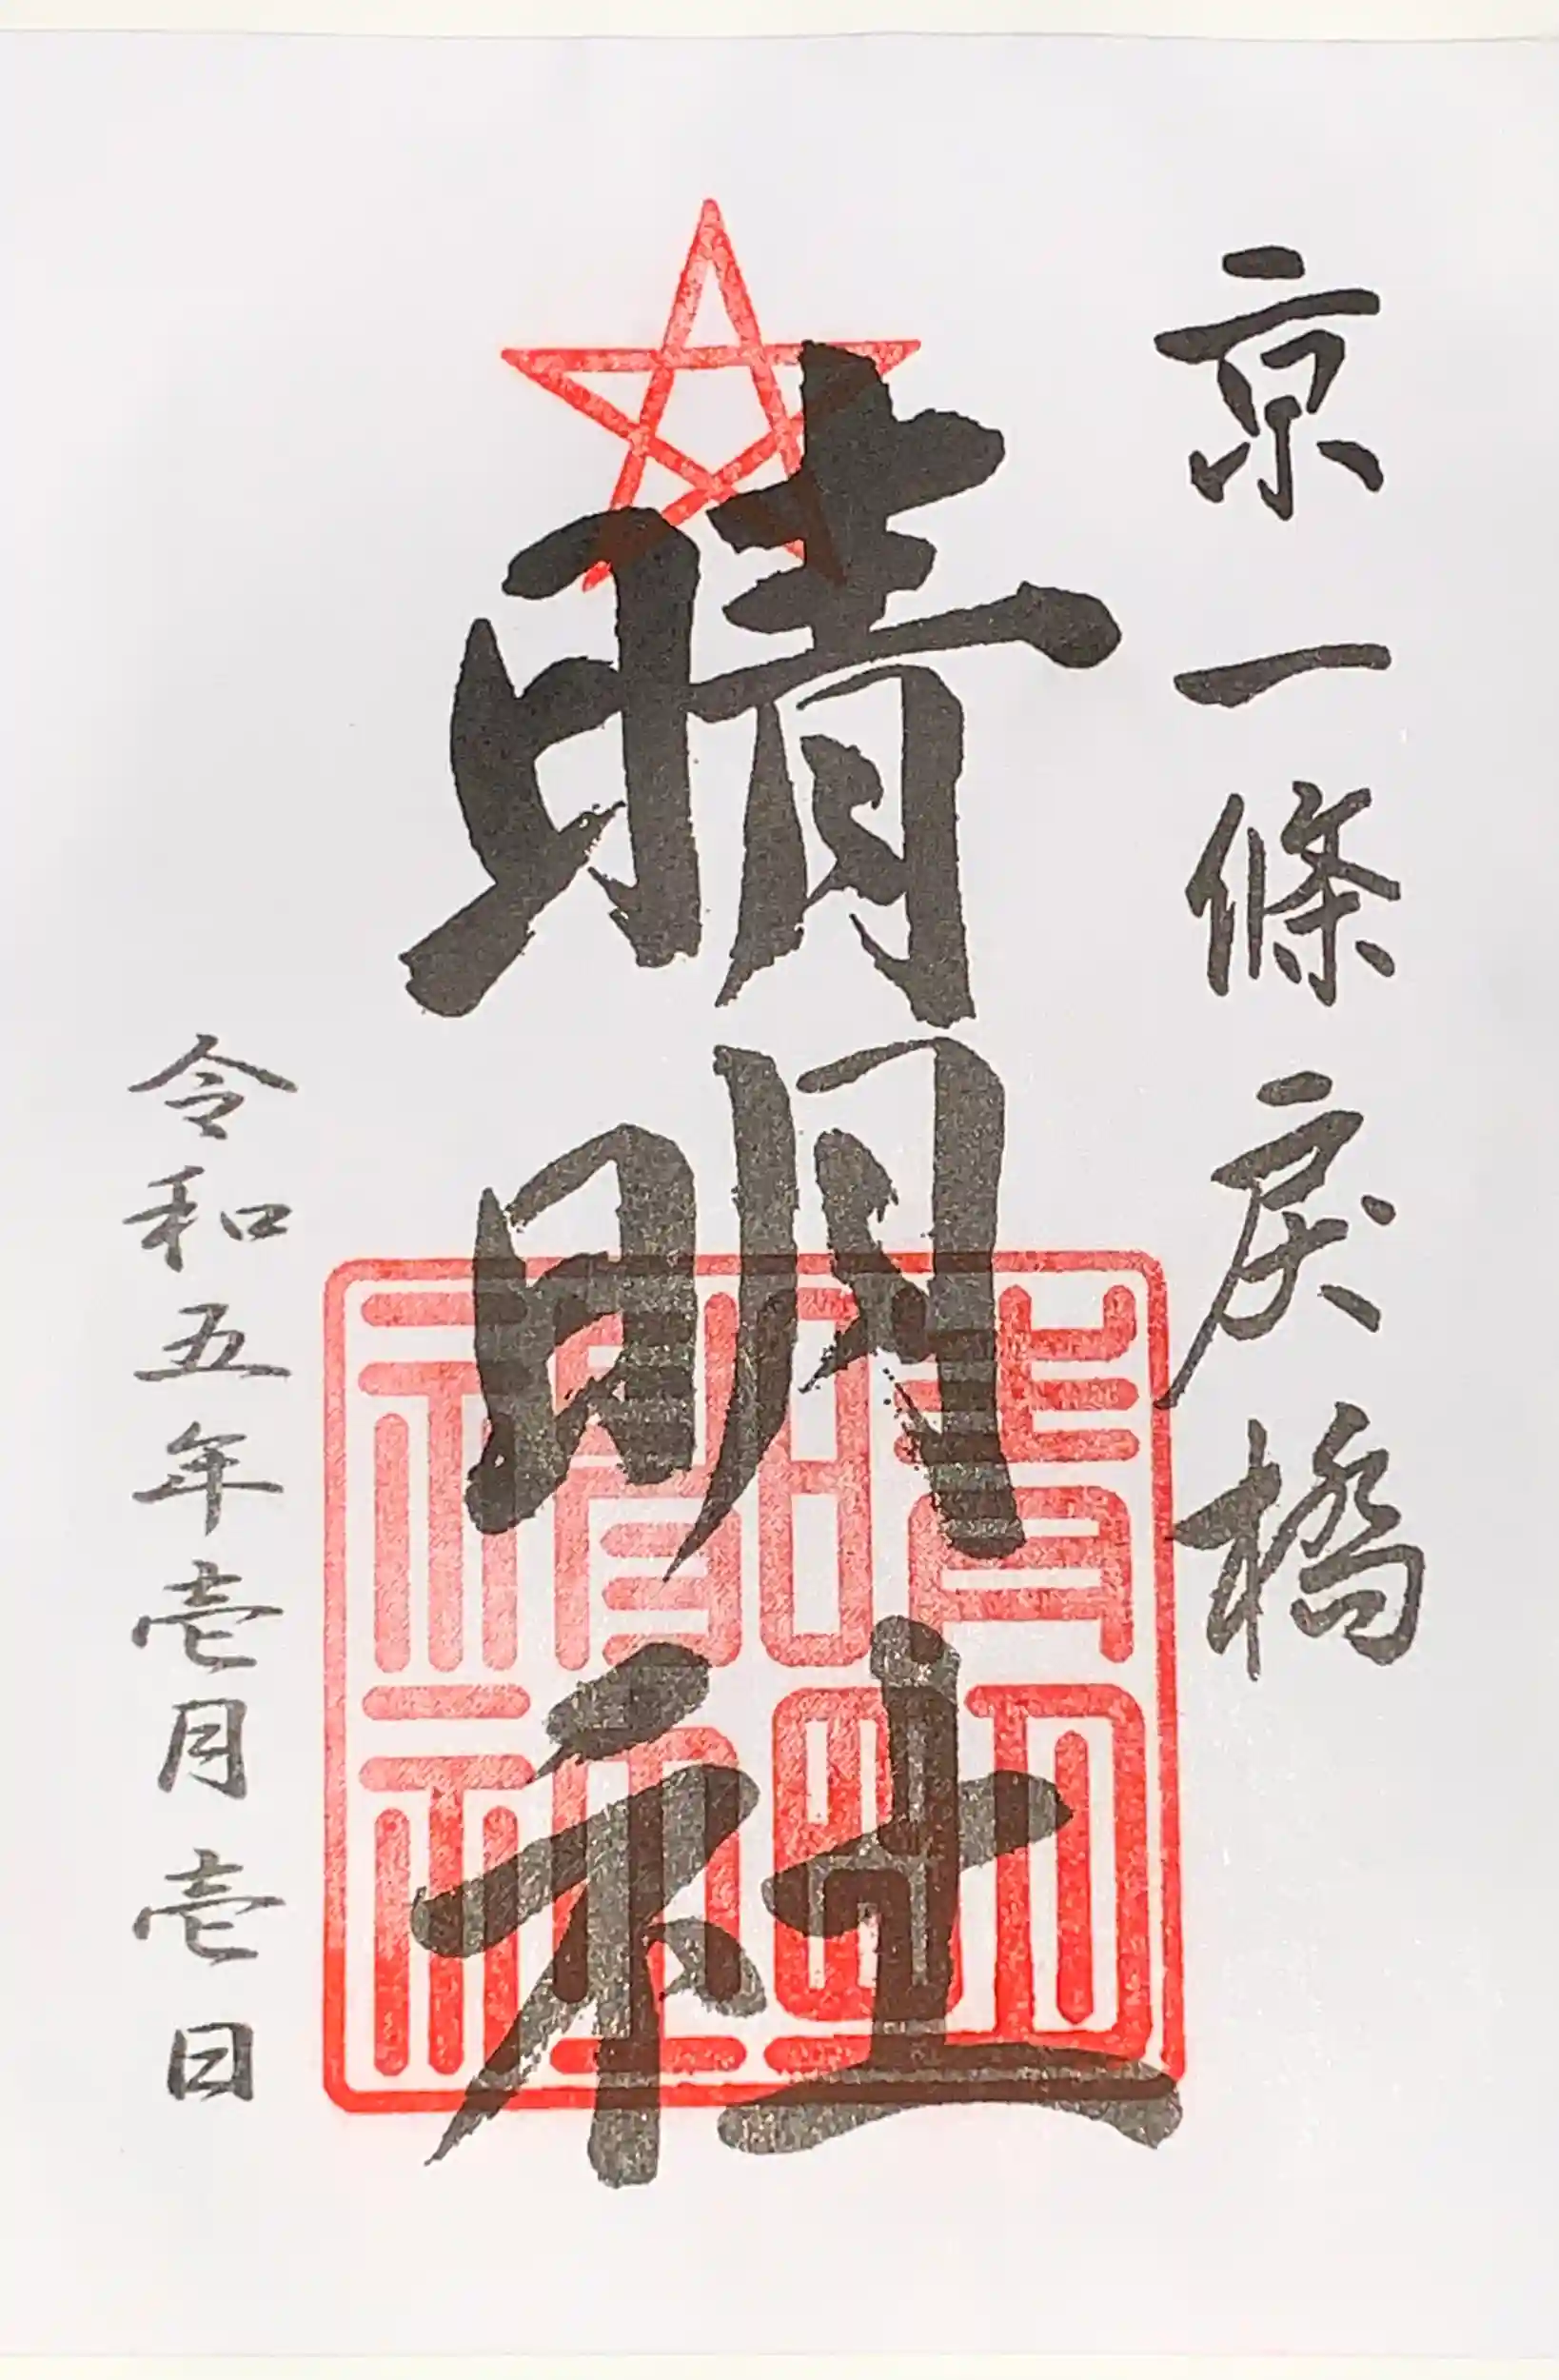 京一條戻橋
晴明社
晴明神社
令和五年壱月壱日